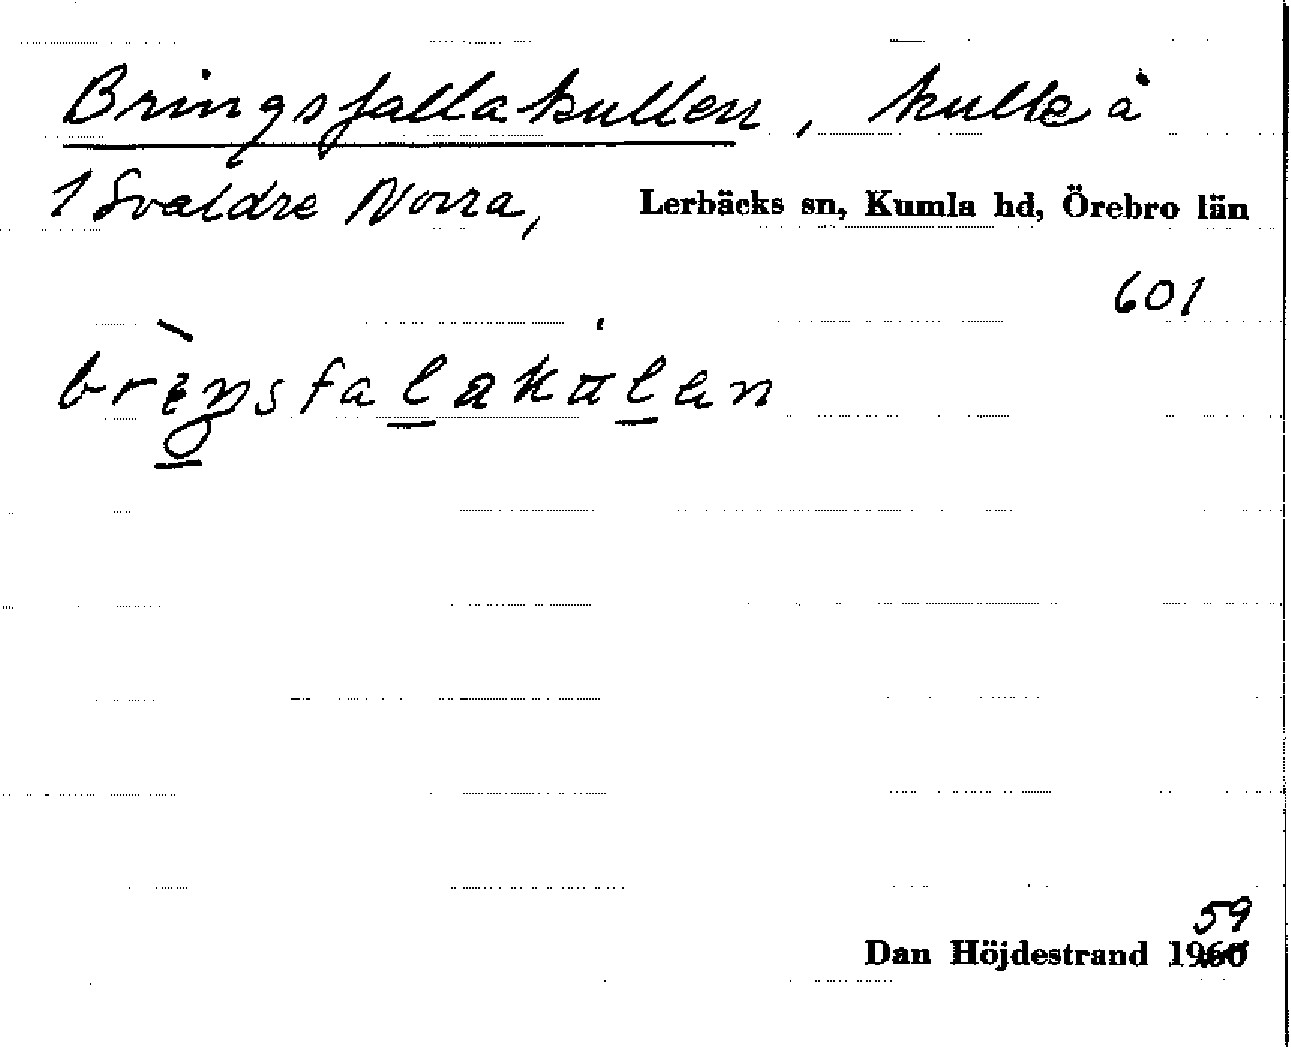 Bringsfallakullen, kulle å
1 Svaldre Norra, Lerbäcks sn, Kumla hd, Örebro län
601
brıŋsfalakulen
59
Dan Höjdestrand 1960